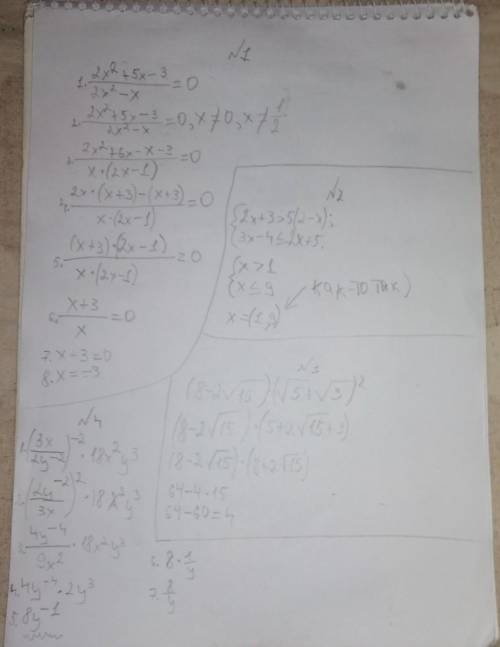 №1
1. (2x²+5x-3)/(2x²-x) = 0
2. (2x²+5x-3)/(2x²-x) = 0, x≠0, x≠1/2
3. (2x²+6x-x-3)/(x·(2x-1)) = 0
4. (2x·(x+3)-(x+3))/(x·(2x-1)) = 0
5. ((x+3)·(2x-1))/(x·(2x-1)) = 0
6. (x+3)/x = 0
7. x-3=0
8. x=-3
№2
{2x+3>5(2-x);
{3x-4≤2x+5;
{x>1
{x≤9
как-то так)
x=(1,9)
№3
(8-2√15)·(√5+√3)²
(8-2√15)·(5+2√15+3)
(8-2√15)·(8+2√15)
64-4·15
64-60=4
№4
1. (3x/2y⁻²)⁻²·18x²y³
2. (2y⁻²/3x)²·18x²y³
3. 4y⁻⁴/9x²·18x²y³
4. 4y⁻⁴·2y³
5. 8y⁻¹
6. 8·1/y
7. 8/y